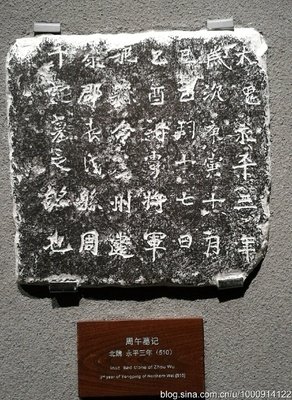 大魏永平三年
歲次庚寅十月
己巳朔十七日
乙酉將軍
縣令州建
郡長城縣周
午記墓之銘也
周午墓记
北魏 永平三年（510）
Inscribed stone of Zhou Wu
3rd year of Yongping of Northern Wei (510)
blog.sina.com.cn/u/1000914122